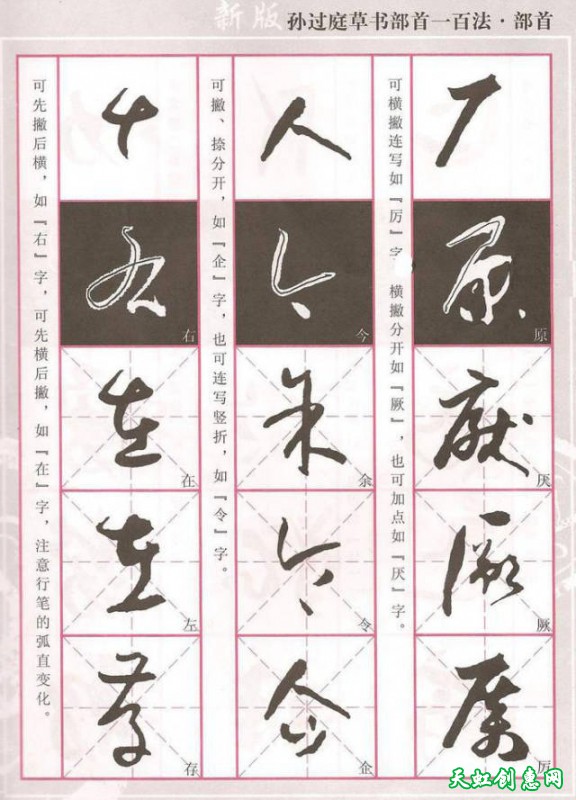 新版 孙过庭草书部首一百法·部首
可横撇连写如『厉』字 横撇分开如『厥』，也可加点如『厌』字。
原
厌
厥
厉
可撇、捺分开，如『企』字，也可连写竖折，如『令』字。
今
余
令
企
可先撇后横，如『右』字，可先横后撇，如『在』字，注意行笔的弧直变化。
右
在
左
存
天虹创意网